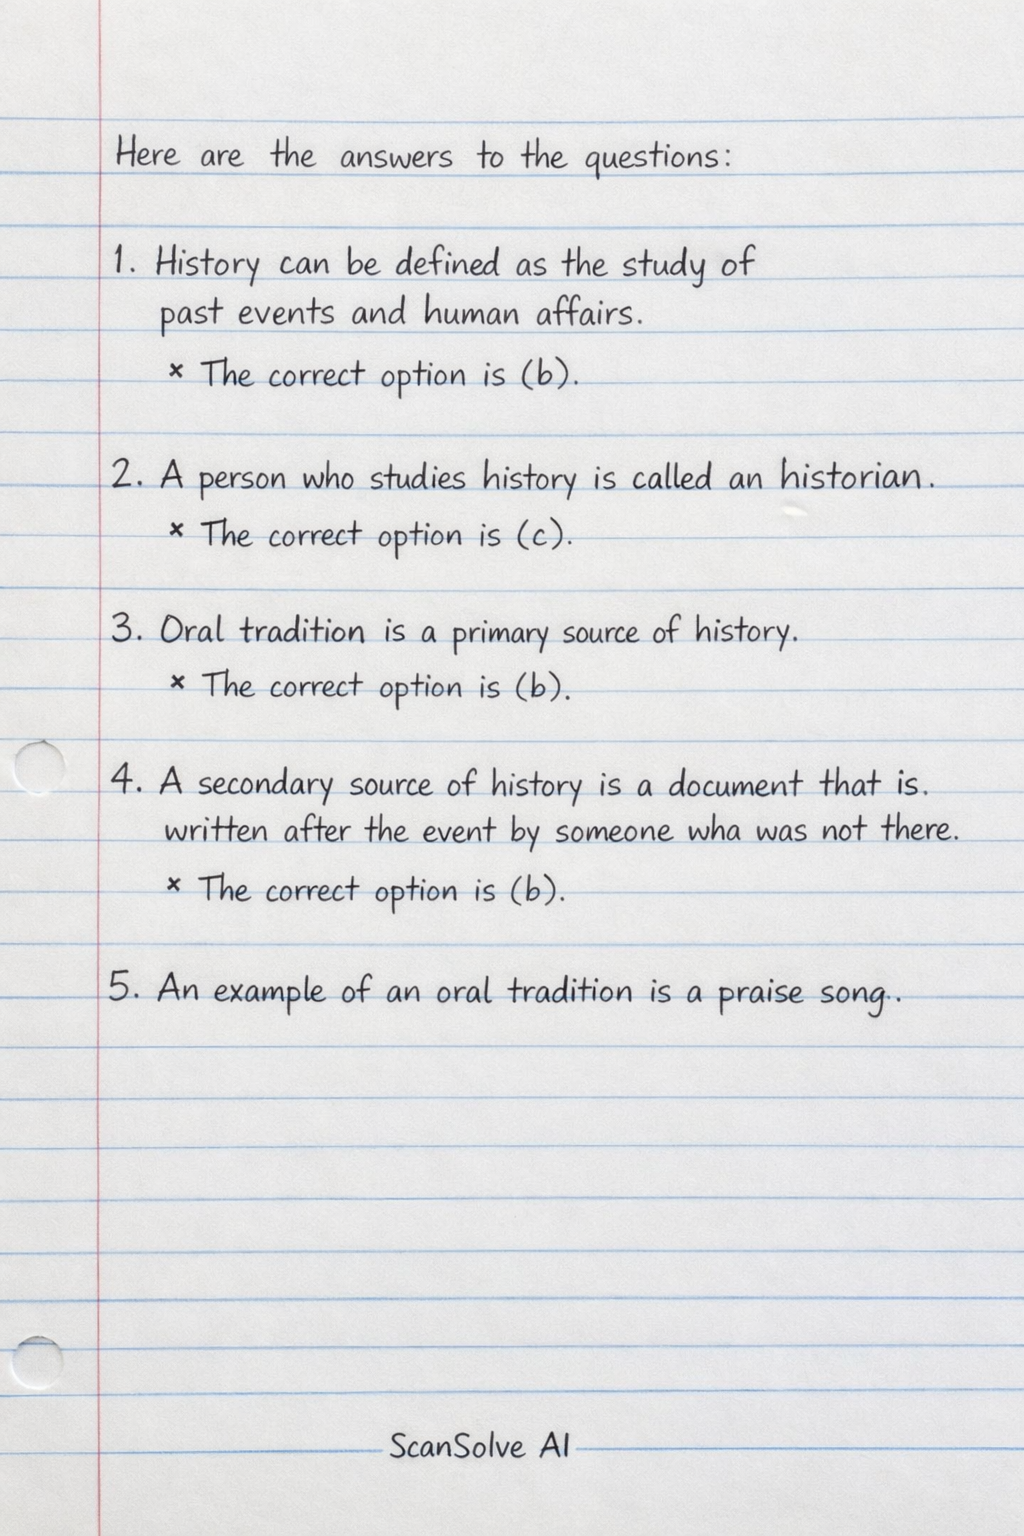 Here are the answers to the questions:
1. History can be defined as the study of
past events and human affairs.
× The correct option is (b).
2. A person who studies history is called an historian.
× The correct option is (c).
3. Oral tradition is a primary source of history.
× The correct option is (b).
4. A secondary source of history is a document that is.
written after the event by someone wha was not there.
× The correct option is (b).
5. An example of an oral tradition is a praise song..
ScanSolve AI